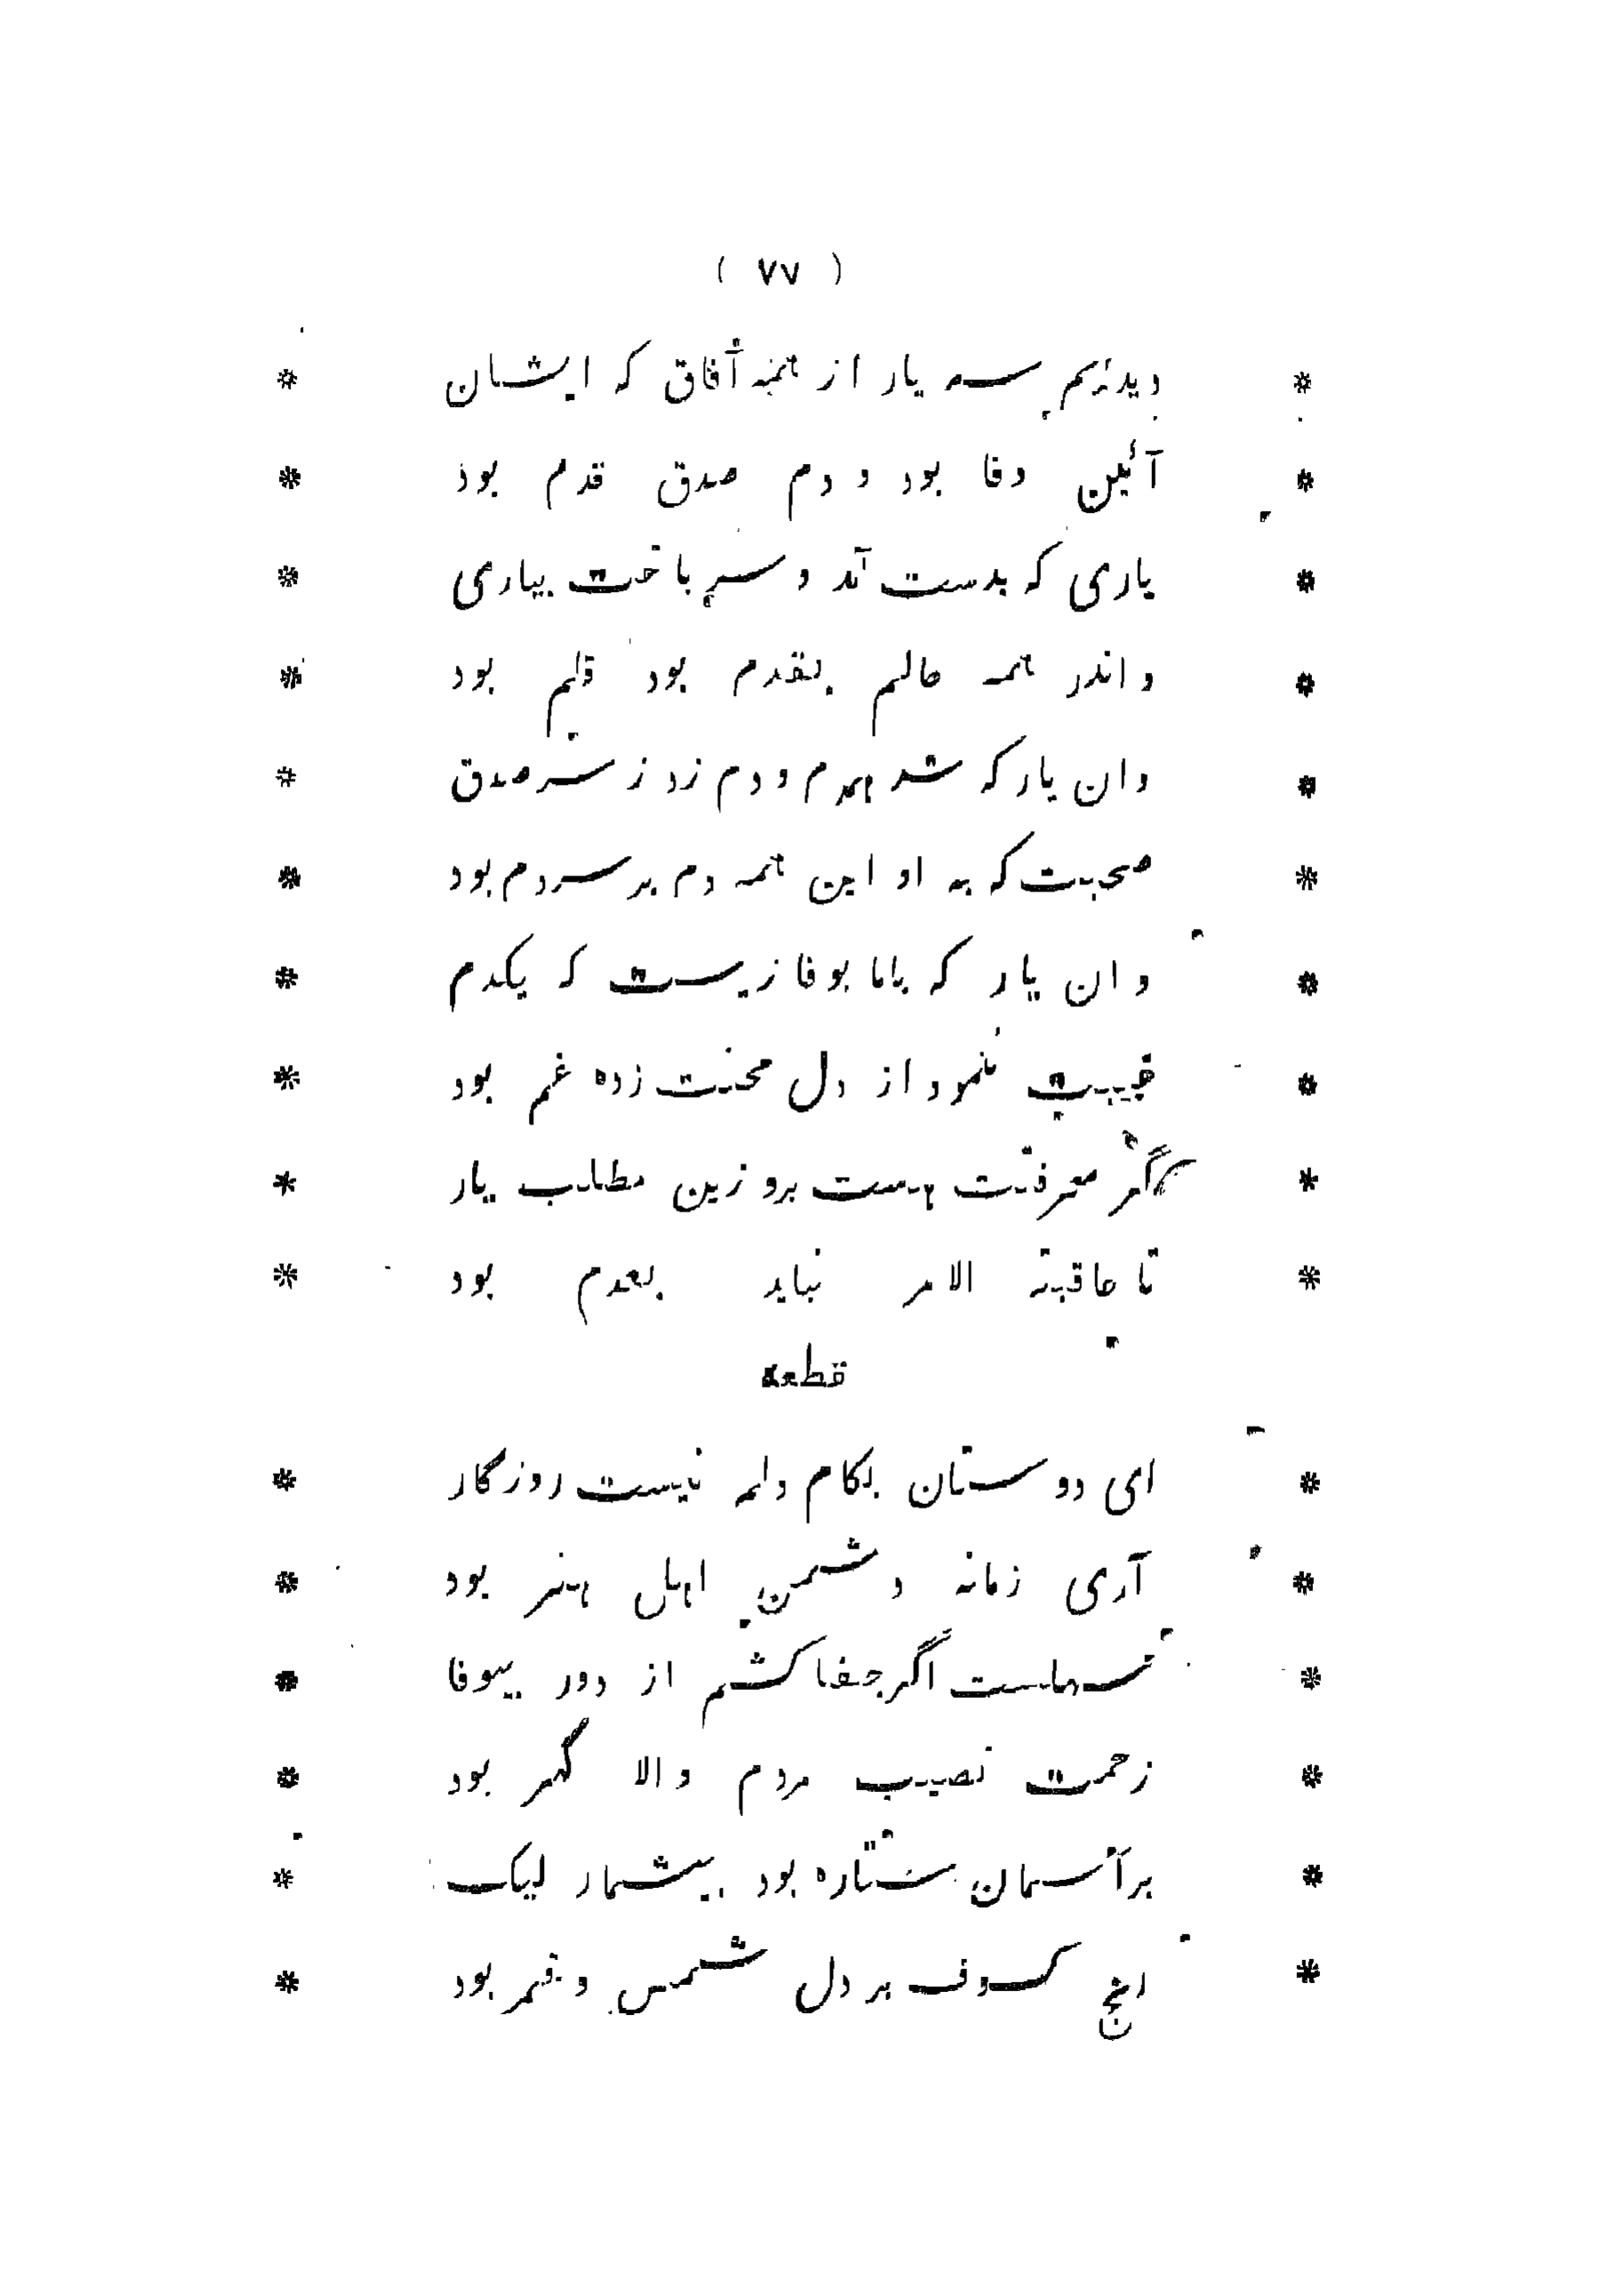 ( ٧٧ )
* دیدیم سه یار از همه آفاق که ایشان *
* آئین وفا بود و دم صدق قدم بود *
* یاری که بدست آمد و سر باخت بیاری *
* واندر همه عالم بقدم بود قلم بود *
* وان یار که شد همدم و دم زد ز سر صدق *
* صحبت که به او این همه دم بر سر دم بود *
* وان یار که باما بوفا زیست که یکدم *
* غیبت ننمود از دل محنت زده غم بود *
* گر معرفتت هست برو زین مطلب یار *
* تا عاقبة الامر نباید بعدم بود *
قطعه
* ای دوستان بکام دلم نیست روزگار *
* آری زمانه دشمن اهل هنر بود *
* سهلست اگر جفا کشم از دور بیوفا *
* زحمت نصیب مردم والا گهر بود *
* بر آسمان ستاره بود بیشمار لیک *
* رنج کسوف بر دل شمس و قمر بود *